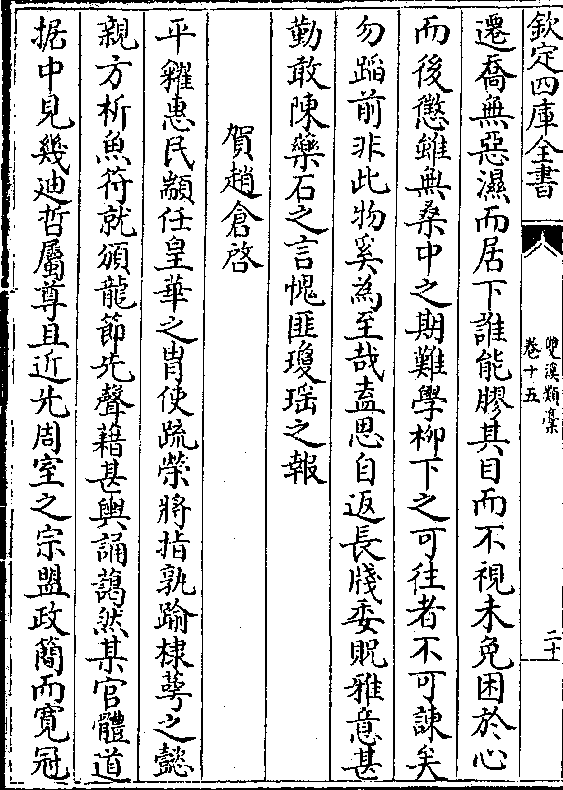 欽定四庫全書
雙溪類稾
卷十五
二十
遷喬無惡濕而居下誰能膠其目而不視未免困於心
而後懲雖無桑中之期難學柳下之可往者不可諫矣
勿蹈前非此物奚為至哉盍思自返長牋委貺雅意甚
勤敢陳藥石之言愧匪瓊瑶之報
賀趙倉啓
平糴惠民顓任皇華之冑使疏榮將指孰踰棣萼之懿
親方析魚符就頒龍節先聲藉甚輿誦藹然某官體道
据中見幾迪哲屬尊且近光周室之宗盟政簡而寛冠